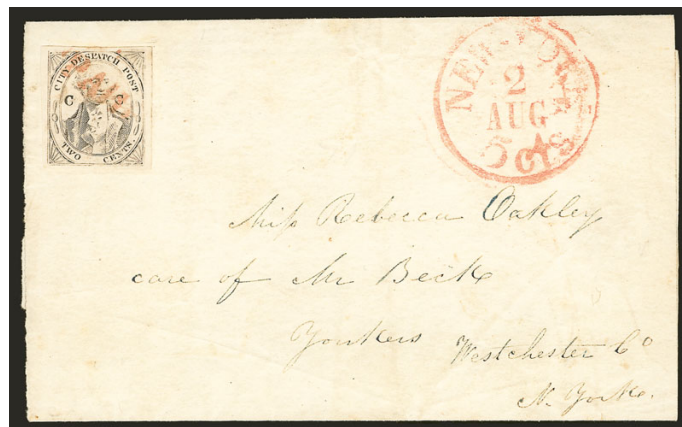 CITY DESPATCH POST
C C
TWO CENTS
NEW-YORK
2
AUG
5 cts
Miss Rebecca Oakley
care of Mr Beck
Yonkers
Westchester Co
N. York.